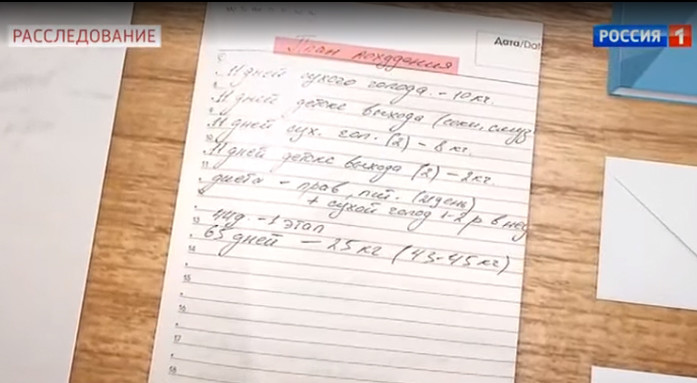 РАССЛЕДОВАНИЕ
РОССИЯ 1
Дата/Dat
План похудения
11 дней сухого голода - 10 кг.
11 дней детокс выхода (соки, смуз
11 дней сух. гол. (2) - 8 кг.
11 дней детокс выхода (2) - 2 кг.
диета - прав. пит. (21 день)
+ сухой голод + 2 р в нед
44 д. - 1 этап
65 дней - 25 кг (43-45 кг)